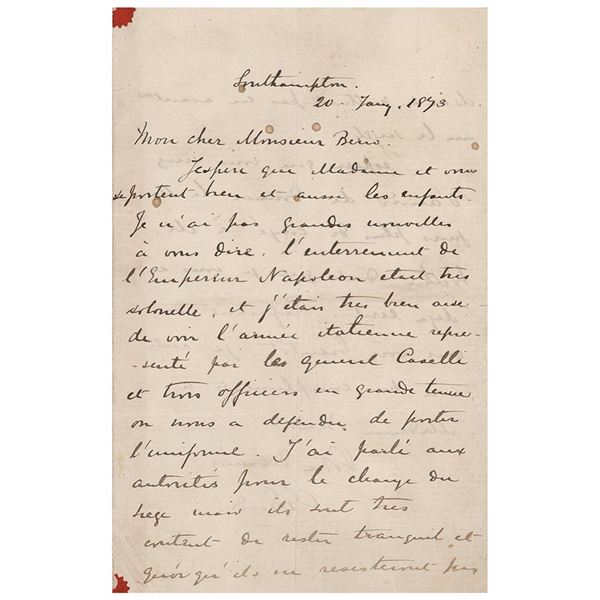 Southampton.
20 Jany. 1873
Mon cher Monsieur
J'espere que Madame et vous
se portent bien et aussi les enfants.
Je n'ai pas grandes nouvelles
à vous dire. l'enterrement de
l'Empereur Napoleon etait tres
solonelle, et j'étais tres bien aise
de voir l'armée italienne repre-
-senté par les general Caselli
et trois officiers en grande tenue
on nous a defendu de porter
l'uniforme. J'ai parlé aux
autorités pour le change du
siege mais ils sont tres
content de rester tranquil et
quoiqu'ils ne resisteront pas